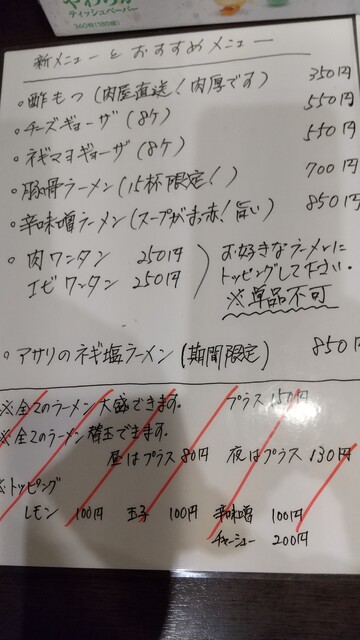 ティッシュペーパー
360枚(180組)
新メニューとおすすめメニュー
○酢もつ(肉屋直送!肉厚です) 350円
○チーズギョーザ(8ケ) 550円
○ネギマヨギョーザ(8ケ) 550円
○豚骨ラーメン(15杯限定!) 700円
○辛味噌ラーメン(スープがまっ赤!旨い) 850円
○肉ワンタン 250円
エビワンタン 250円
お好きなラーメンに
トッピングして下さい。
※単品不可
○アサリのネギ塩ラーメン(期間限定) 850円
※全てのラーメン大盛できます。 プラス150円
※全てのラーメン替玉できます。
昼はプラス80円 夜はプラス130円
※トッピング
レモン 100円 玉子 100円 辛味噌 100円
チャーシュー 200円